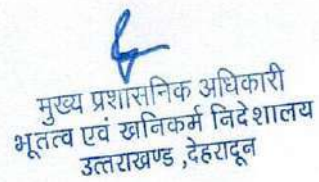 मुख्य प्रशासनिक अधिकारी
भूतत्व एवं खनिकर्म निदेशालय
उत्तराखण्ड ,देहरादून